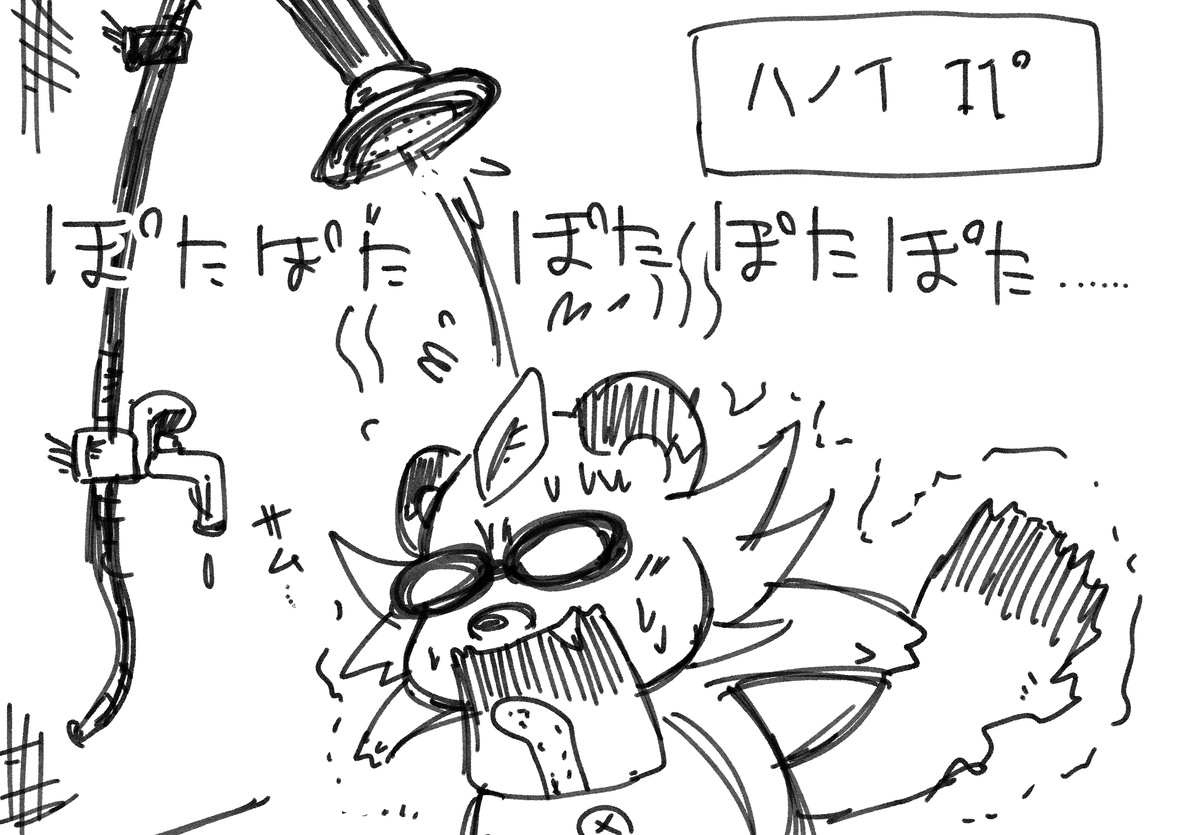 ハノイ
ぽたぽたぽたぽたぽた……
サム…